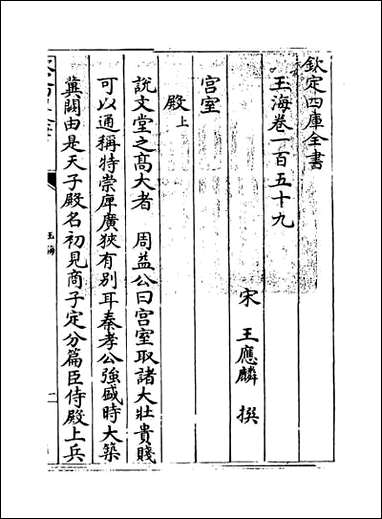 欽定四庫全書
玉海卷一百五十九
宋 王應麟 撰
宮室
殿上
說文堂之髙大者 周益公曰宮室取諸大壯貴賤
可以通稱特崇庳廣狹有別耳秦孝公強盛時大築
冀闕由是天子殿名初見商子定分篇臣侍殿上兵
玉海